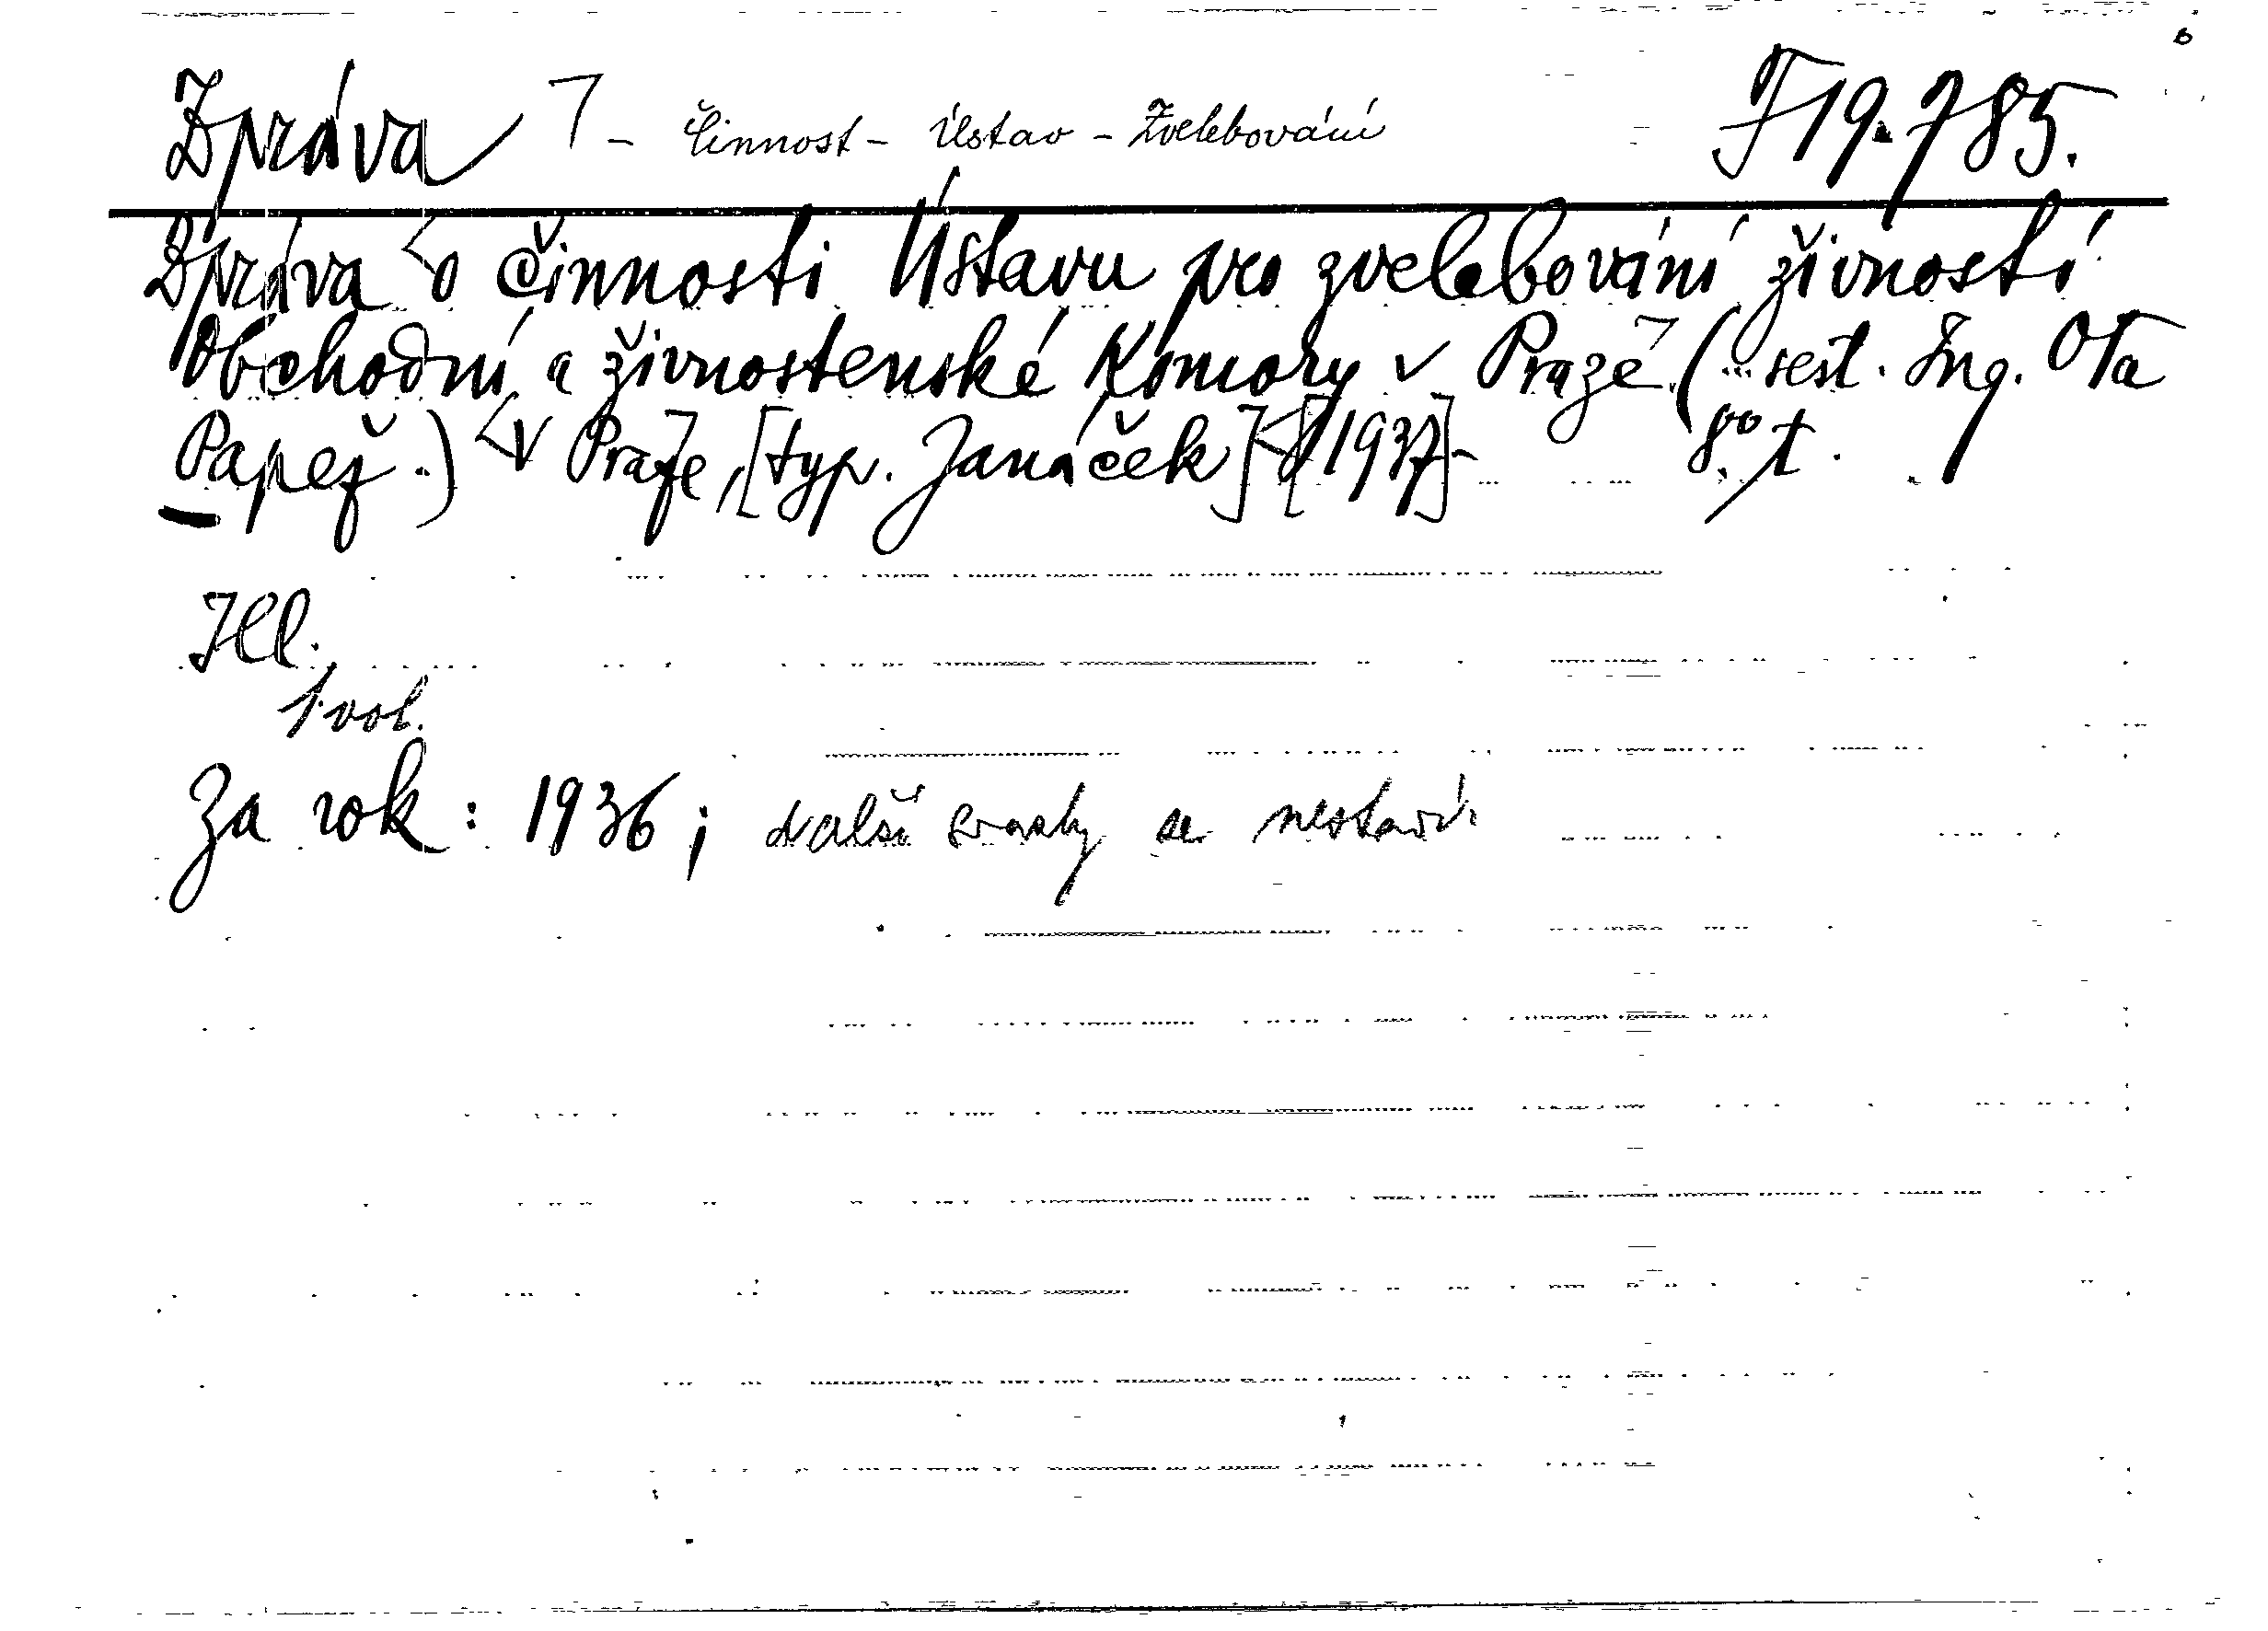 Zpráva - činnost - Ústav - Zvelebování F 19.785.
Zpráva o činnosti Ústavu pro zvelebování živností
Obchodní a živnostenské Komory v Praze. (sest. Ing. Ota
Papež.) V Praze, [typ. Janáček] [1937]- 8° t.
Ill.
1 vol.
Za rok: 1936; další svazky se nestaví